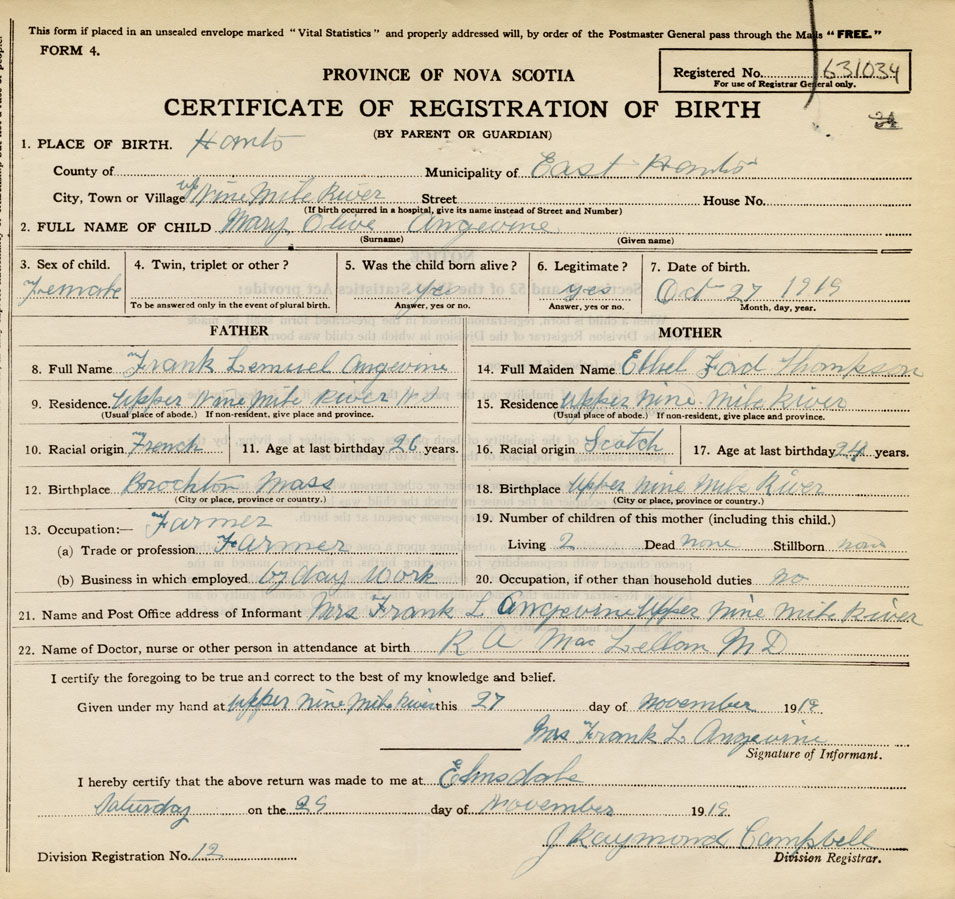 This form if placed in an unsealed envelope marked "Vital Statistics" and properly addressed will, by order of the Postmaster General pass through the Mails "FREE."
FORM 4.
PROVINCE OF NOVA SCOTIA
Registered No. 631034
For use of Registrar General only.
CERTIFICATE OF REGISTRATION OF BIRTH
34
(BY PARENT OR GUARDIAN)
1. PLACE OF BIRTH. Hants
County of Municipality of East Hants
City, Town or Village up Nine Mile River Street House No.
(If birth occurred in a hospital, give its name instead of Street and Number)
2. FULL NAME OF CHILD Mary Olive Angevine
(Surname) (Given name)
3. Sex of child. 4. Twin, triplet or other? 5. Was the child born alive? 6. Legitimate? 7. Date of birth.
Female yes yes Oct 27 1919
To be answered only in the event of plural birth. Answer, yes or no. Answer, yes or no. Month, day, year.
FATHER
8. Full Name Frank Lemuel Angevine
9. Residence. Upper Nine Mile River N S
(Usual place of abode.) If non-resident, give place and province.
10. Racial origin French 11. Age at last birthday 26 years.
12. Birthplace Brockton Mass
(City or place, province or country.)
13. Occupation:— Farmer
(a) Trade or profession Farmer
(b) Business in which employed by day work
MOTHER
14. Full Maiden Name Ethel Ford Thompson
15. Residence Upper Nine Mile River
(Usual place of abode.) If non-resident, give place and province.
16. Racial origin Scotch 17. Age at last birthday 24 years.
18. Birthplace Upper Nine Mile River
(City or place, province or country.)
19. Number of children of this mother (including this child.)
Living 2 Dead none Stillborn none
20. Occupation, if other than household duties no
21. Name and Post Office address of Informant Mrs Frank L Angevine Upper Nine Mile River
22. Name of Doctor, nurse or other person in attendance at birth R A MacLellan M D
I certify the foregoing to be true and correct to the best of my knowledge and belief.
Given under my hand at Upper Nine Mile River this 27 day of November 1919
Mrs Frank L Angevine
Signature of Informant.
I hereby certify that the above return was made to me at Elmsdale
Saturday on the 29 day of November 1919
J Raymond Campbell
Division Registration No. 12 Division Registrar.